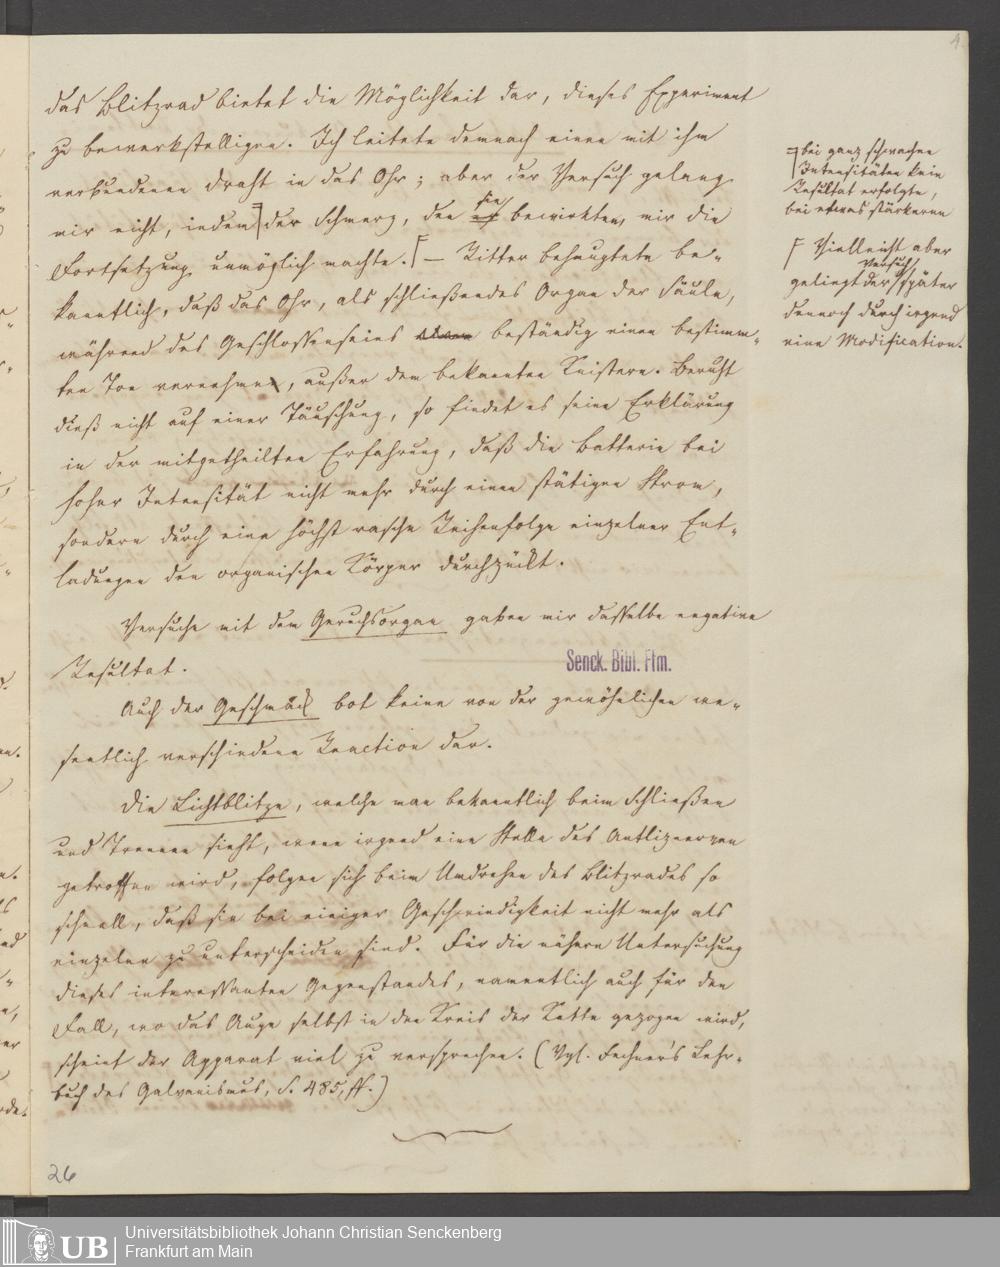 4.
das Blitzrad bietet die Möglichkeit dar, dieses Experiment
zu bewerkstelligen. Ich leitete demnach einen mit ihm
verbundenen Draht in das Ohr; aber der Versuch gelang
mir nicht, indem der Schmerz, den sie bewirkten, mir die
Fortsetzung unmöglich machte. — Ritter behauptete be-
kanntlich, daß das Ohr, als schließendes Organ der Säule,
während des Geschlossenseins beständig einen bestimm-
ten Ton vernehme, außer dem bekannten Knistern. Beruht
dieß nicht auf einer Täuschung, so findet es seine Erklärung
in der mitgetheilten Erfahrung, daß die Batterie bei
hoher Intensität nicht mehr durch einen stätigen Strom,
sondern durch eine höchst rasche Reihenfolge einzelner Ent-
ladungen den organischen Körper durchzückt.
Versuche mit dem Geruchsorgan gaben mir dasselbe negative
Resultat.
Auch der Geschmack bot keine von der gewöhnlichen we-
sentlich verschiedene Reaction dar.
Die Lichtblitze, welche man bekanntlich beim Schließen
und Trennen sieht, wenn irgend eine Stelle des Antlitznerven
getroffen wird, folgen sich beim Umdrehen des Blitzrades so
schnell, daß sie bei einiger Geschwindigkeit nicht mehr als
einzelne zu unterscheiden sind. Für die nähere Untersuchung
dieses interessanten Gegenstandes, namentlich auch für den
Fall, wo das Auge selbst in den Kreis der Kette gezogen wird,
scheint der Apparat viel zu versprechen. (Vgl. Fechner's Lehr-
buch des Galvanismus, S. 485, ff.)
bei ganz schwachen
Intensitäten kein
Resultat erfolgte,
bei etwas stärkeren
Vielleicht aber
gelingt der Versuch später
dennoch durch irgend
eine Modification.
Senck. Bibl. Ffm.
26
UB
Universitätsbibliothek Johann Christian Senckenberg
Frankfurt am Main